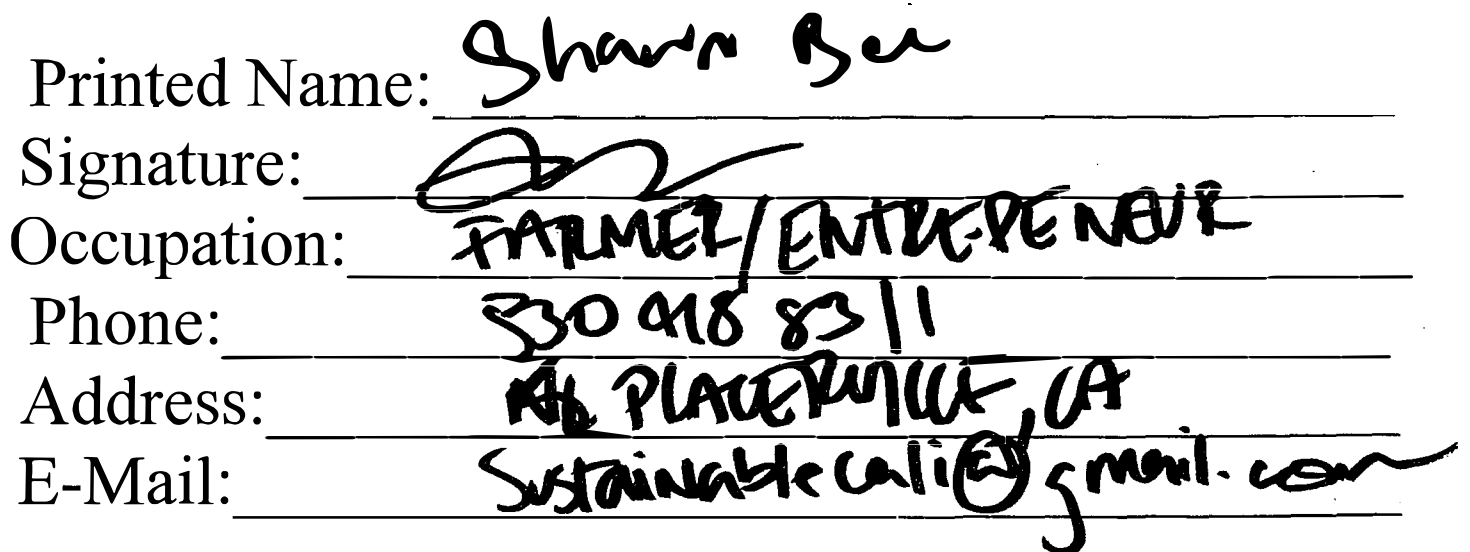 Printed Name: Shawn Bee
Signature:
Occupation: FARMER/ENTREPENEUR
Phone: 530 418 8311
Address: PLACERVILLE, CA
E-Mail: Sustainablecali@gmail.com